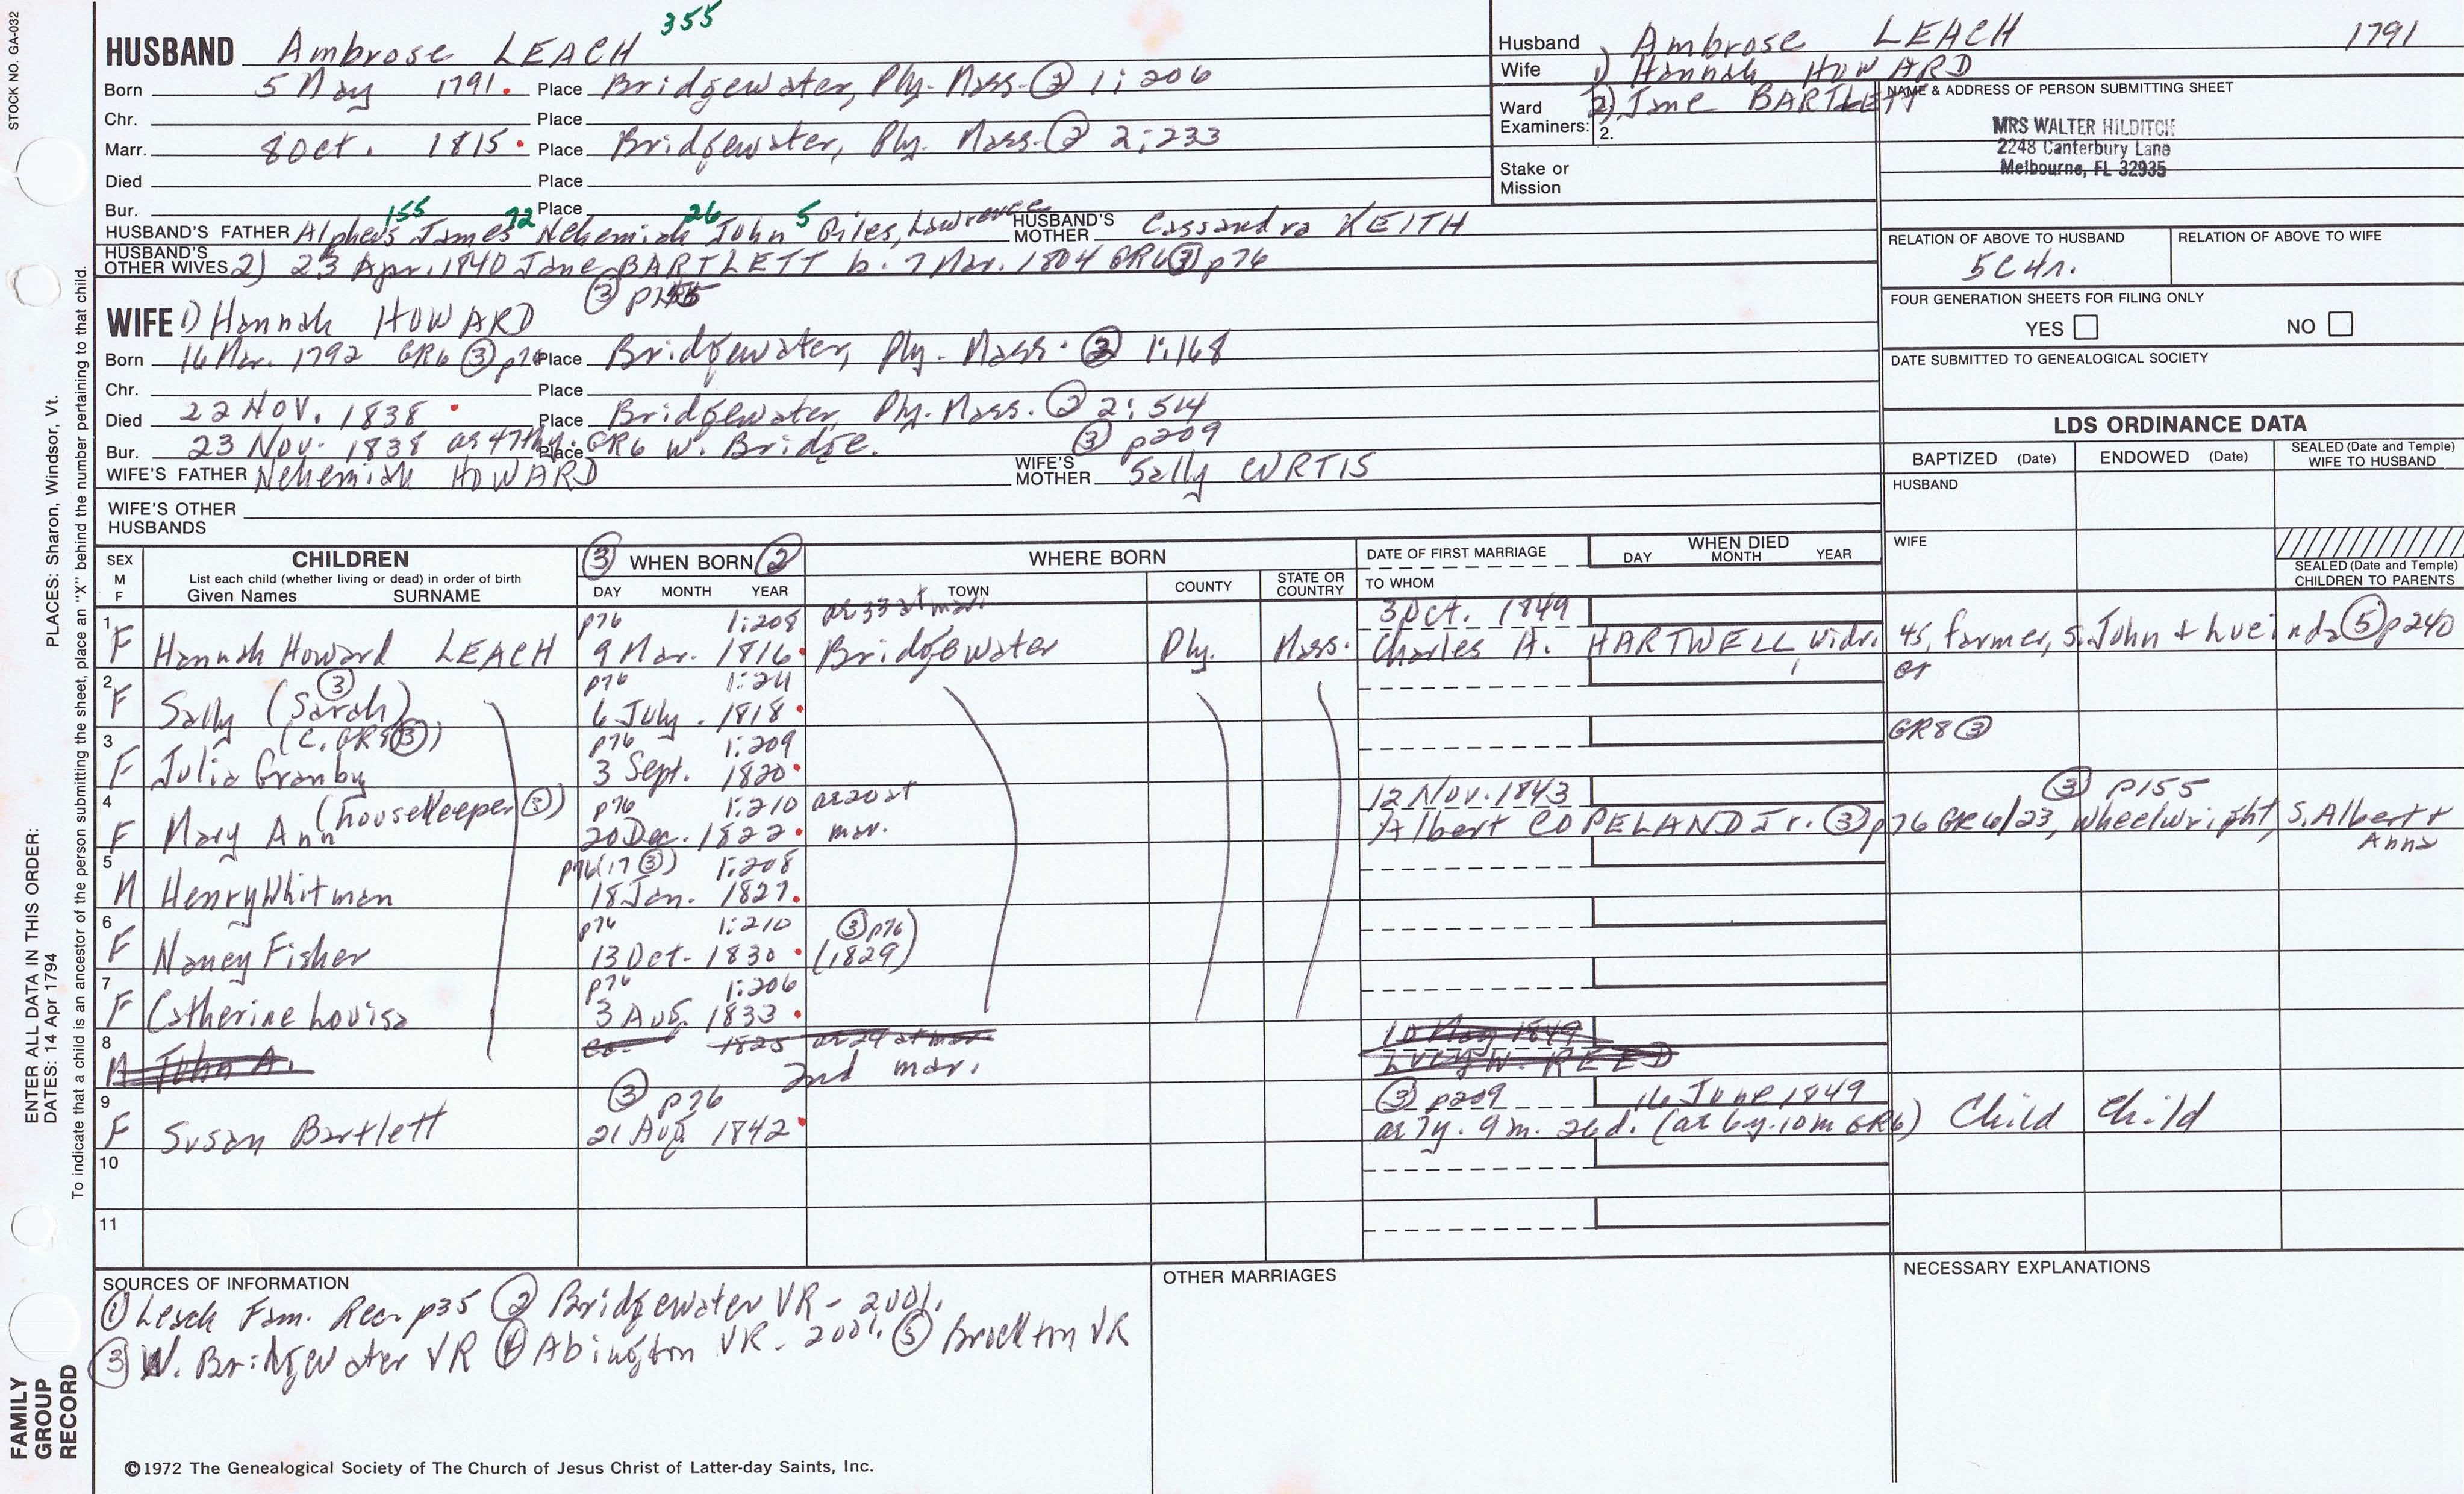 STOCK NO. GA-032
355
HUSBAND Ambrose LEACH
Born 5 May 1791. Place Bridgewater, Ply. Mass. ② 1:206
Chr. Place
Marr. 8 Oct. 1815. Place Bridgewater, Ply. Mass. ② 2:233
Died Place
Bur. Place
155 72 26 5
HUSBAND'S FATHER Alpheus James Nehemiah John Giles, Lawrence HUSBAND'S MOTHER Cassandra KEITH
HUSBAND'S OTHER WIVES 2) 23 Apr. 1840 Jane BARTLETT b. 7 Mar. 1804 GR6 ③ p76
③ p155
WIFE 1) Hannah HOWARD
Born 16 Mar. 1792 GR6 ③ p76 Place Bridgewater, Ply. Mass. ② 1:168
Chr. Place
Died 22 Nov. 1838. Place Bridgewater, Ply. Mass. ② 2:514
Bur. 23 Nov. 1838 Place GR6 W. Bridge. ③ p209
WIFE'S FATHER Nehemiah HOWARD WIFE'S MOTHER Sally CURTIS
WIFE'S OTHER HUSBANDS
Husband Ambrose LEACH 1791
Wife 1) Hannah HOWARD
2) Jane BARTLETT
Ward
Examiners:
2.
Stake or Mission
NAME & ADDRESS OF PERSON SUBMITTING SHEET
MRS WALTER HILDITCH
2248 Canterbury Lane
Melbourne, FL 32935
RELATION OF ABOVE TO HUSBAND RELATION OF ABOVE TO WIFE
5C4r.
FOUR GENERATION SHEETS FOR FILING ONLY
YES NO
DATE SUBMITTED TO GENEALOGICAL SOCIETY
LDS ORDINANCE DATA
BAPTIZED (Date) ENDOWED (Date) SEALED (Date and Temple) WIFE TO HUSBAND
HUSBAND
WIFE
SEALED (Date and Temple) CHILDREN TO PARENTS
SEX M F
CHILDREN
List each child (whether living or dead) in order of birth
Given Names SURNAME
③ WHEN BORN ②
DAY MONTH YEAR
WHERE BORN
TOWN COUNTY STATE OR COUNTRY
DATE OF FIRST MARRIAGE
TO WHOM
WHEN DIED
DAY MONTH YEAR
1 p76 1:208 ae 33 at mar. 3 Oct. 1849
F Hannah Howard LEACH 9 Mar. 1816. Bridgewater Ply. Mass. Charles A. HARTWELL, widr. 45, farmer, S. John & Lucinda ⑤ p240
2 ③ p76 1:211
F Sally (Sarah) 6 July. 1818.
3 (C. GR8 ③) p76 1:209 GR8 ③
F Julia Granby 3 Sept. 1820.
4 (housekeeper ③) p76 1:210 ae 20 at 12 Nov. 1843 ③ p155
F Mary Ann 20 Dec. 1822. mar. Albert COPELAND Jr. ③ p76 GR6/23, wheelwright, S. Albert & Anna
5 p76 (17 ③) 1:208
M Henry Whitman 18 Jan. 1827.
6 p76 1:210 ③ p76
F Nancy Fisher 13 Oct. 1830. (1829)
7 p76 1:206
F Catherine Louisa 3 Aug. 1833.
8 ca. 1825 ae 24 at mar 10 May 1849
M John A. Lucy W. REED
2nd mar.
9 ③ p76 ③ p209 16 June 1849
F Susan Bartlett 21 Aug. 1842. ae 7y. 9m. 26d. (ae 6y. 10m GR6) Child Child
10
11
SOURCES OF INFORMATION
① Leach Fam. Rec. p35 ② Bridgewater VR - 200%.
③ W. Bridgewater VR ④ Abington VR - 200%. ⑤ Brockton VR
OTHER MARRIAGES
NECESSARY EXPLANATIONS
©1972 The Genealogical Society of The Church of Jesus Christ of Latter-day Saints, Inc.
PLACES: Sharon, Windsor, Vt.
ENTER ALL DATA IN THIS ORDER:
DATES: 14 Apr 1794
To indicate that a child is an ancestor of the person submitting the sheet, place an "X" behind the number pertaining to that child.
FAMILY
GROUP
RECORD